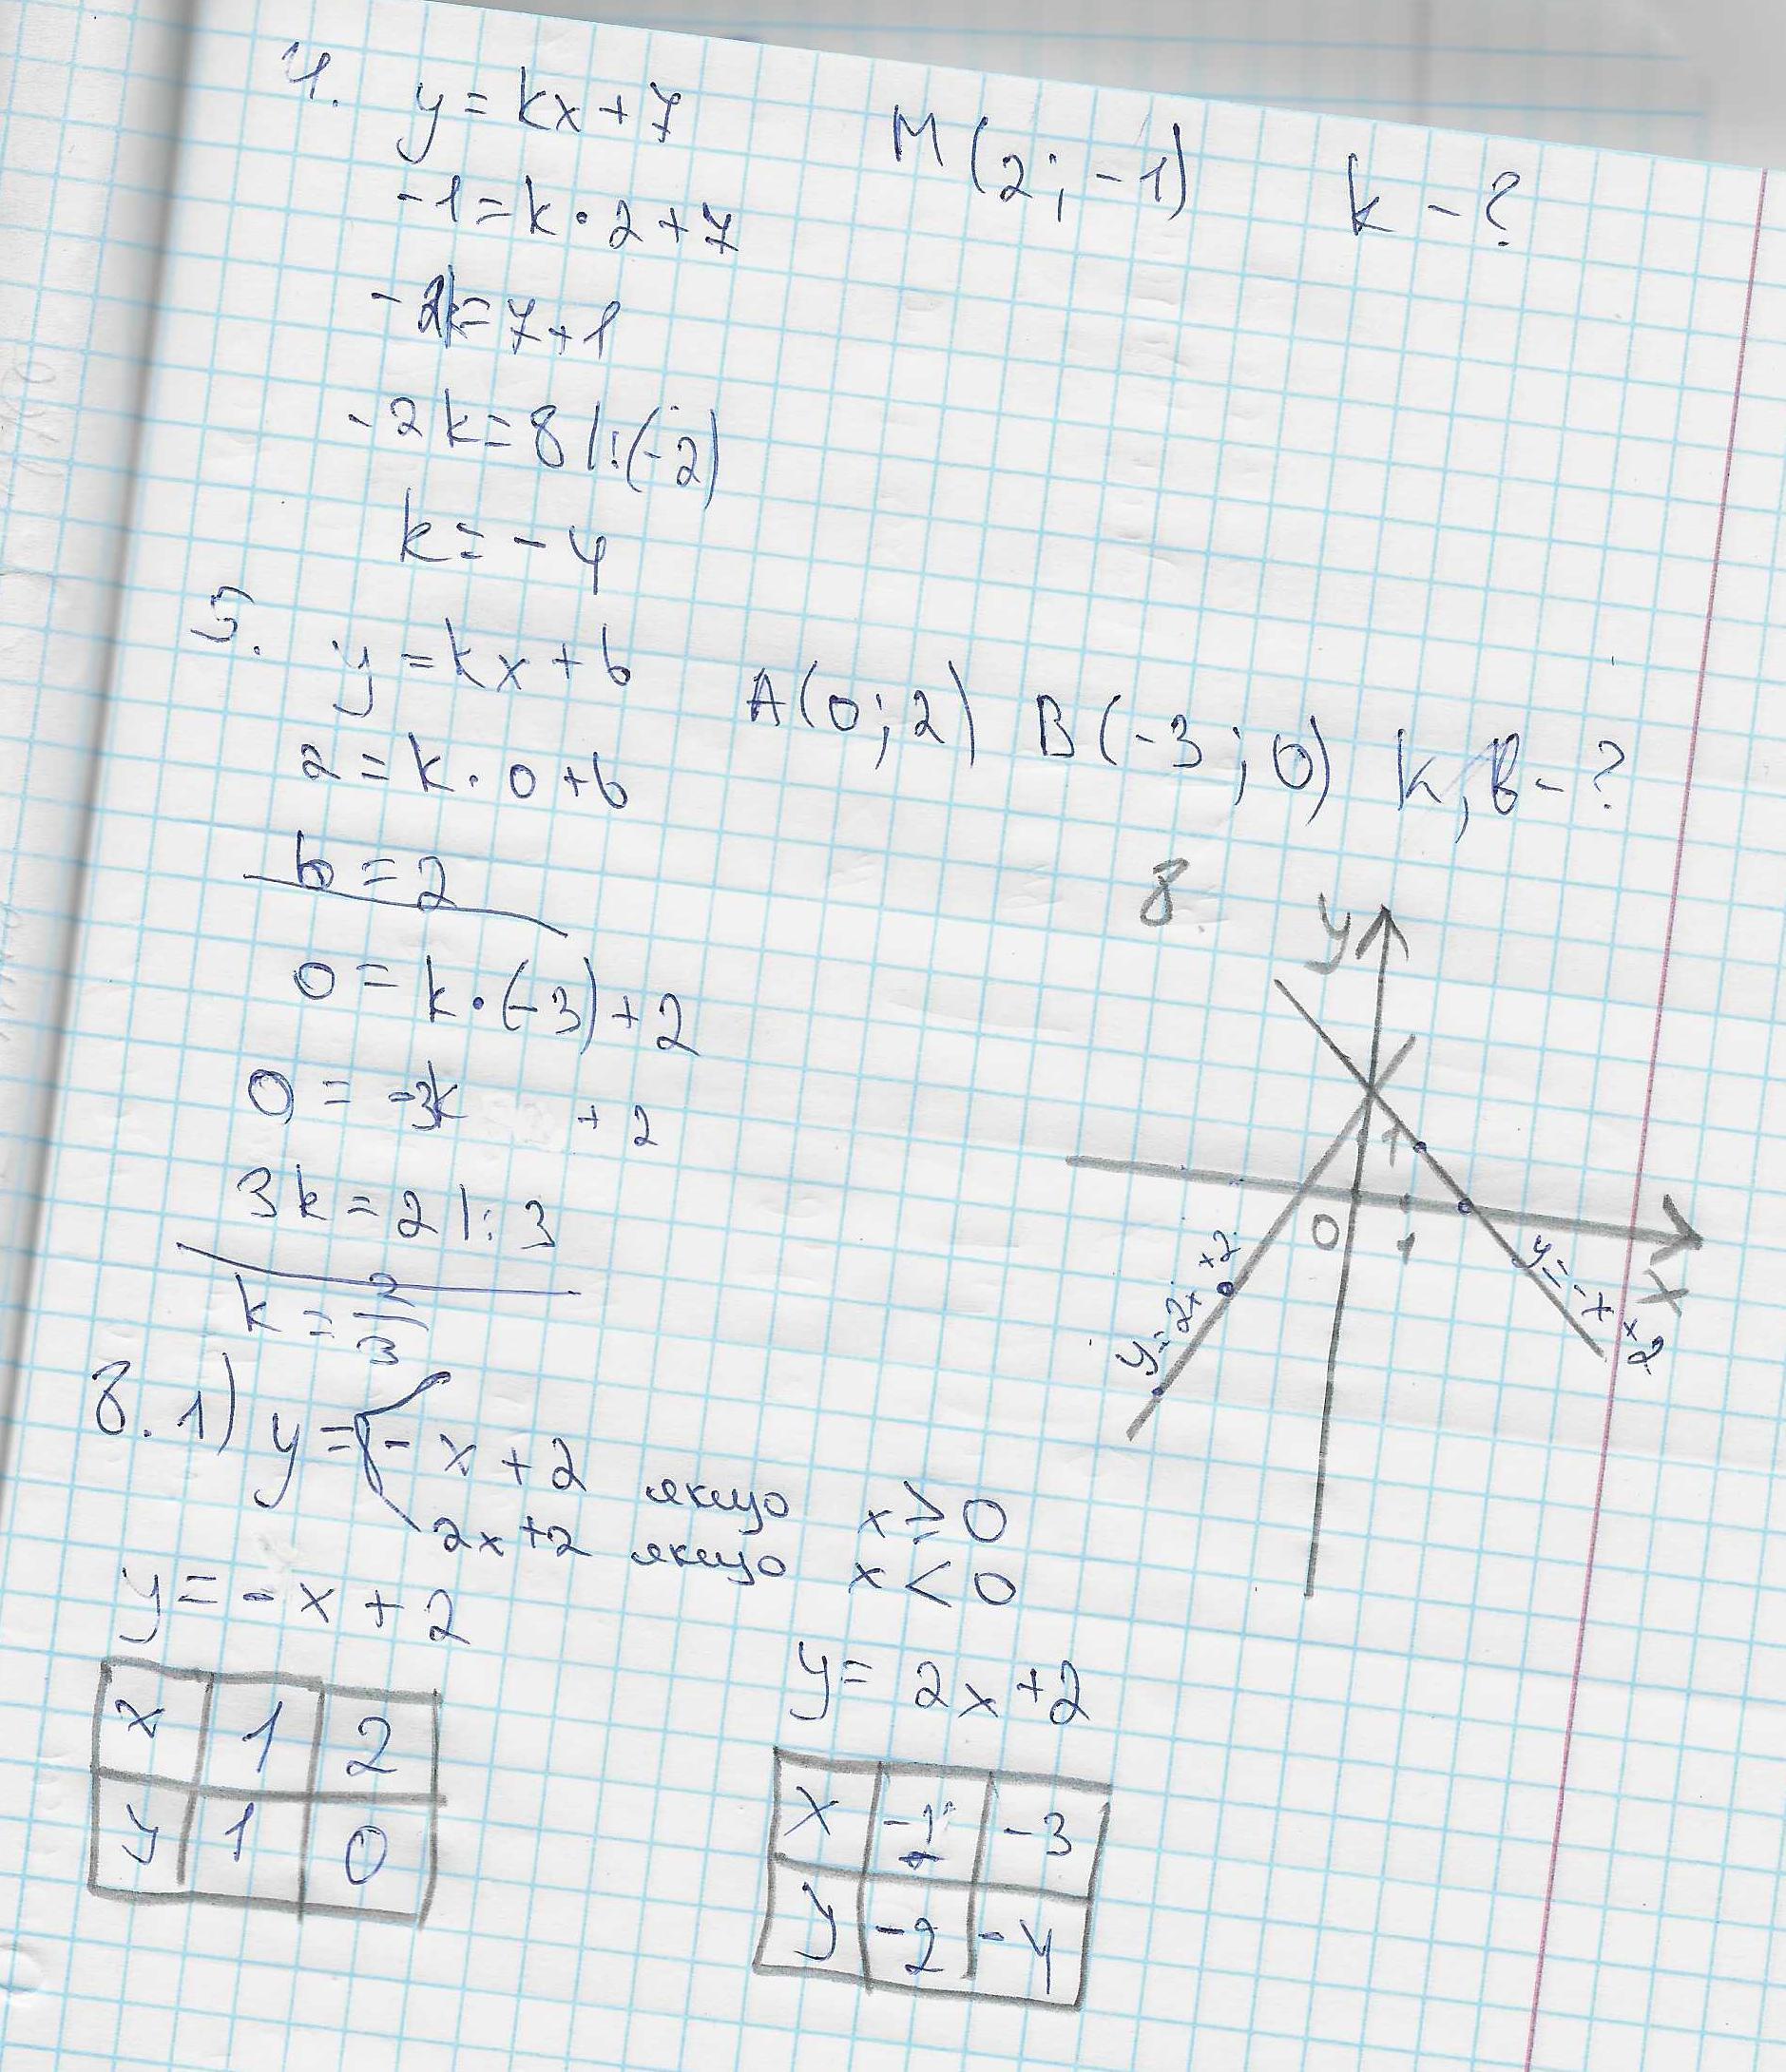 4. y = kx + 7 M(2; -1) k - ?
-1 = k · 2 + 7
-2k = 7 + 1
-2k = 8 |:(-2)
k = -4
5. y = kx + b A(0; 2) B(-3; 0) k, b - ?
2 = k · 0 + b
b = 2
0 = k · (-3) + 2
0 = -3k + 2
3k = 2 |: 3
k = 2/3
8.
y
1
0
1
x
y = 2x + 2
y = -x + 2
8. 1) y = { -x + 2 якщо x ≥ 0
2x + 2 якщо x < 0
y = -x + 2
x 1 2
y 1 0
y = 2x + 2
x -1 -3
y -2 -4